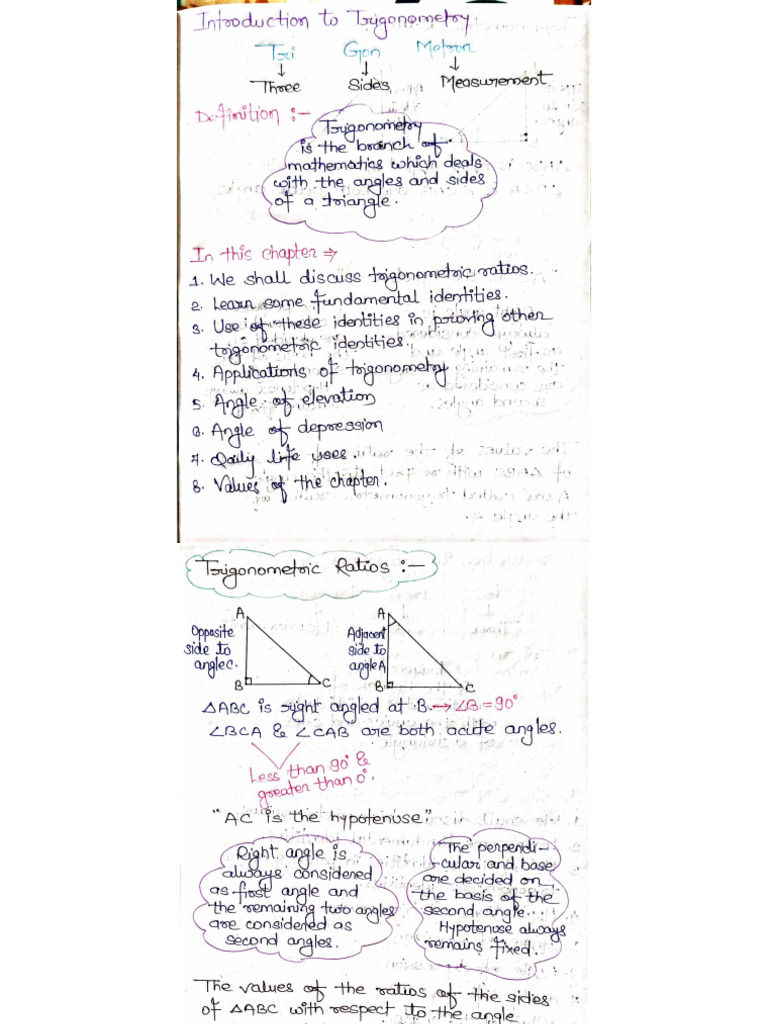 Introduction to Trigonometry.
Tri Gon Metron
↓ ↓ ↓
Three Sides Measurement
Definition :-
Trigonometry
is the branch of
mathematics which deals
with the angles and sides
of a triangle.
In this chapter ⇒
1. We shall discuss trigonometric ratios.
2. Learn some fundamental identities.
3. Use of these identities in proving other
trigonometric identities.
4. Applications of trigonometry
5. Angle of elevation
6. Angle of depression
7. Daily life uses.
8. Values of the chapter.
Trigonometric Ratios :-
A
Opposite
side to
angle C.
B
C
A
Adjacent
side to
angle A
B
C
△ABC is right angled at B. → ∠B = 90°
∠BCA & ∠CAB are both acute angles.
Less than 90° &
greater than 0°.
"AC is the hypotenuse"
Right angle is
always considered
as first angle and
the remaining two angles
are considered as
second angles.
The perpendi-
-cular and base
are decided on
the basis of the
second angle.
Hypotenuse always
remains fixed.
The values of the ratios of the sides
of △ABC with respect to the angle